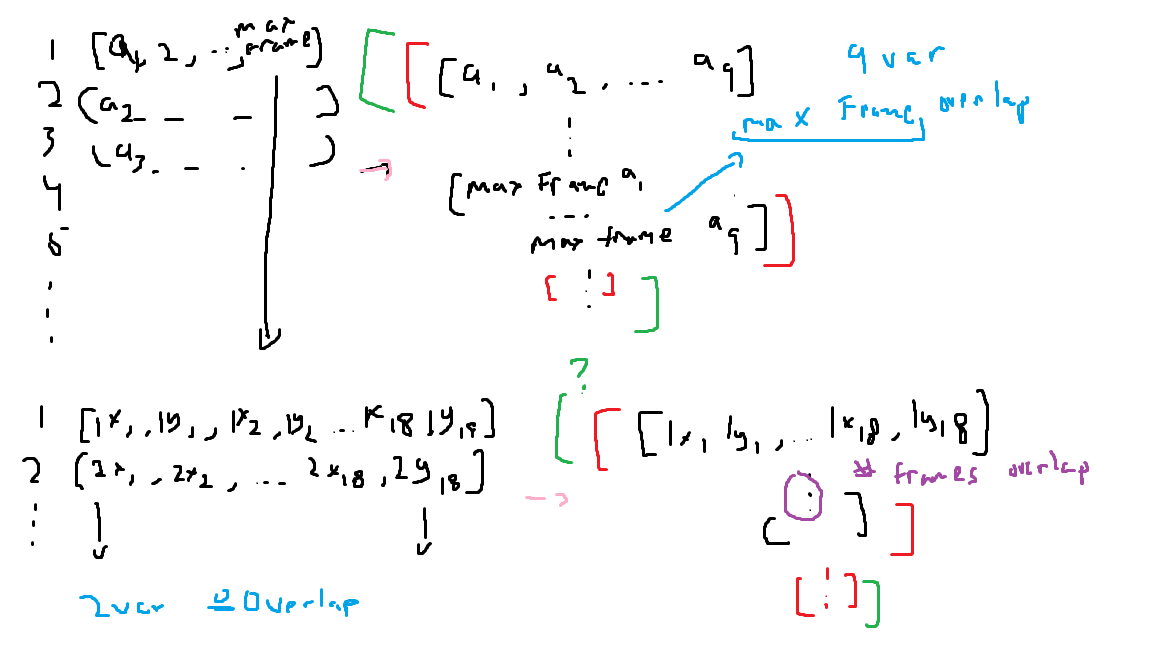 1 [a1, 2, ..., max frame]
2 (a2 _ _ _ )
3 (a3 _ _ . )
4
5
.
.
.
[[[a1, a2, ... a9]
⋮
[max Frame a1
...
max frame a9]]
[⋮]]
9 var
max Frame overlap
1 [1x1, 1y1, 1x2, 1y2 ... 1x18 1y18]
2 (2x1, 2x2, ... 2x18, 2y18]
⋮
2var 0 Overlap
?
[[[1x1 1y1, ... 1x18, 1y18]
# frames overlap
[⋮]]
[⋮]]